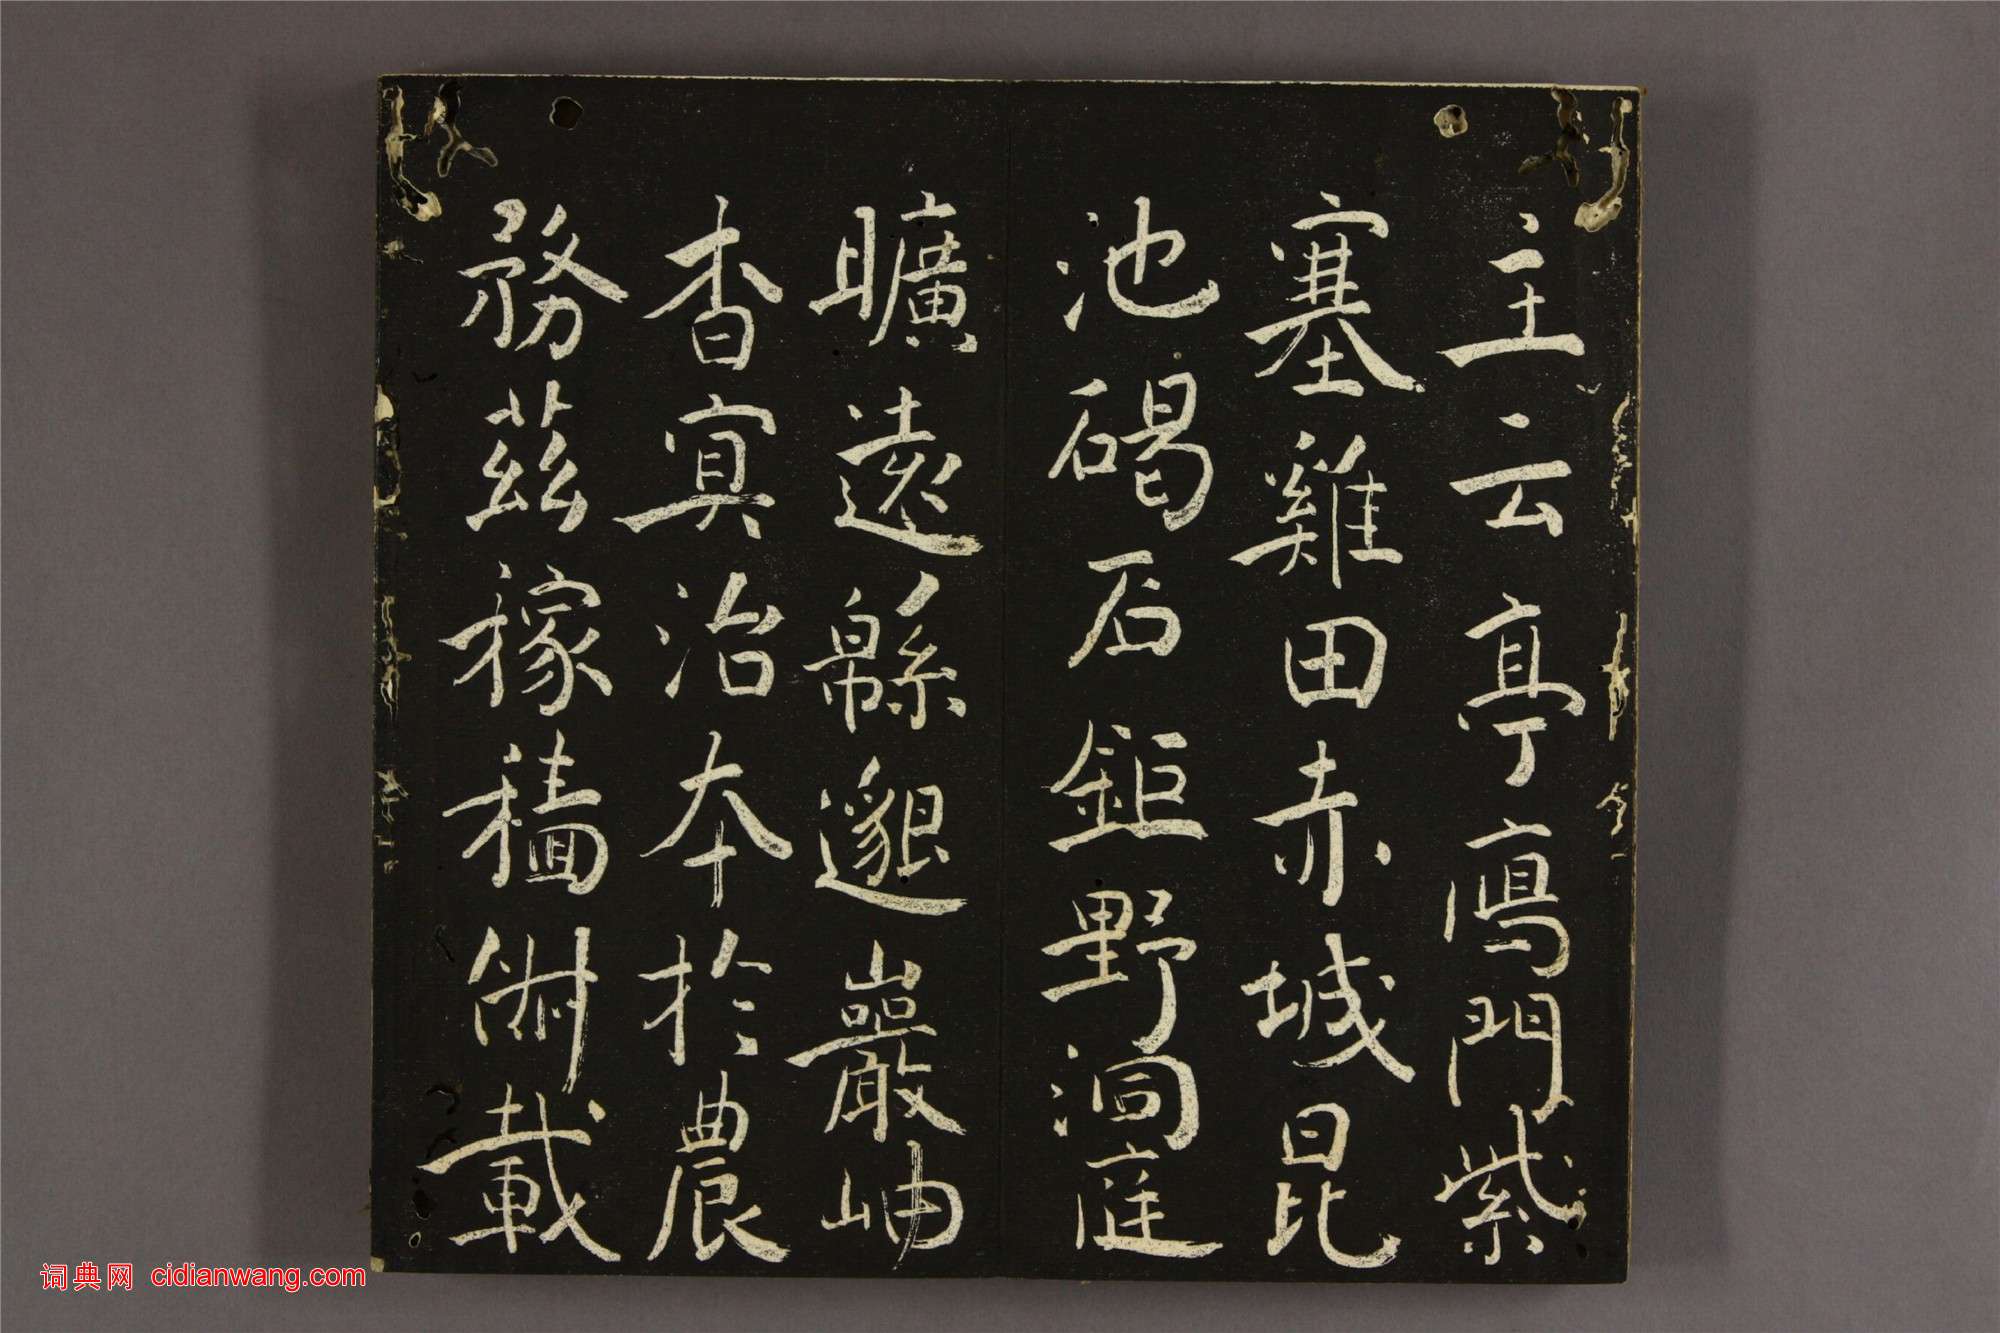 主云亭鴈門紫
塞雞田赤城昆
池碣石鉅野洞庭
曠遠緜邈巖岫
杳冥治本於農
務茲稼穡俶載
词典网 cidianwang.com